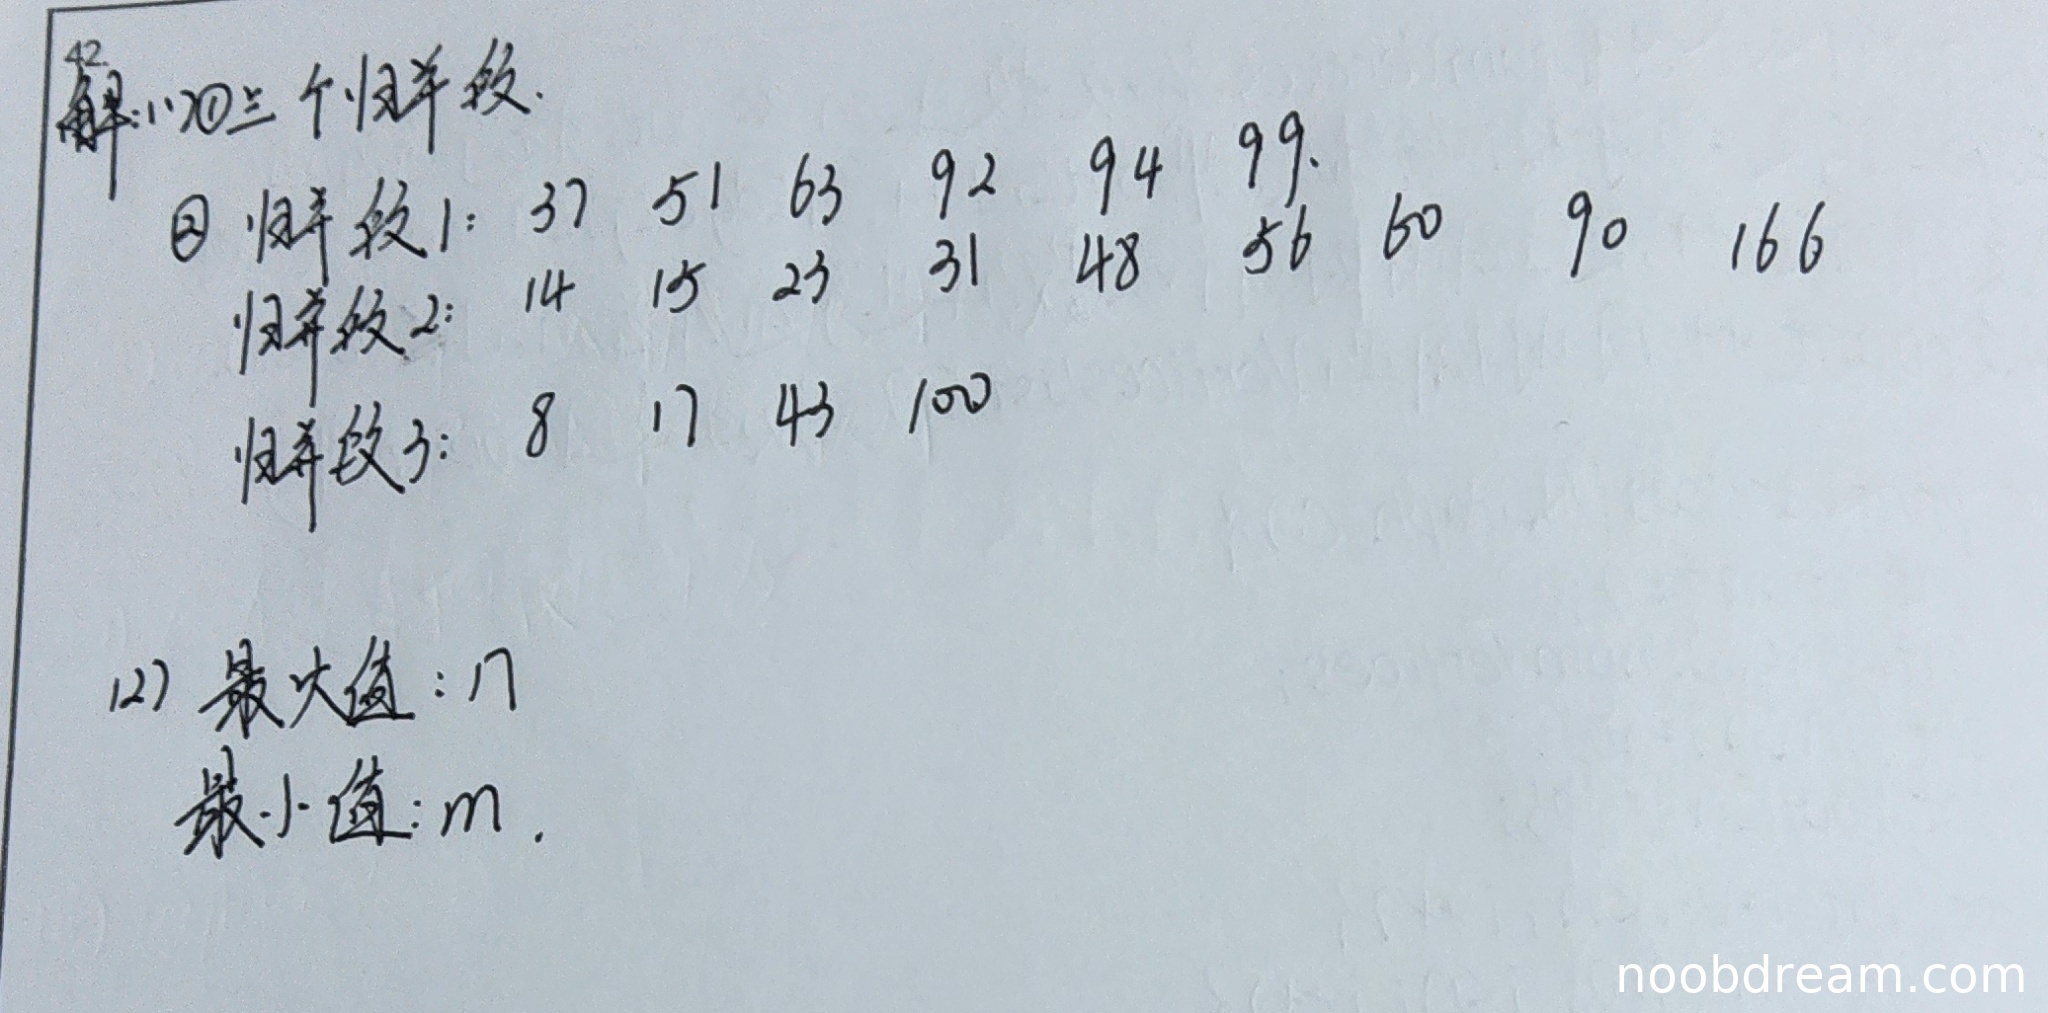 42
解:(1)①三个归并段.
②归并段1: 37 51 63 92 94 99.
归并段2: 14 15 23 31 48 56 60 90 166
归并段3: 8 17 43 100
(2) 最大值:n
最小值:m.
noobdream.com